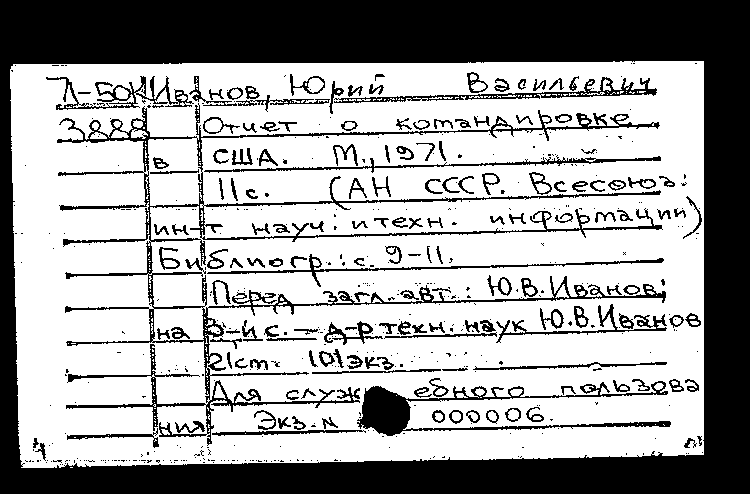 Л-БОК Иванов, Юрий Васильевич
3888 Отчет о командировке
в США. М., 1971.
11с. (АН СССР. Всесоюз.
ин-т науч. и техн. информации)
Библиогр.: с. 9-11.
Перед загл. авт.: Ю.В.Иванов;
на 3-й с. - д-р техн. наук Ю.В.Иванов
21см. 101экз.
Для служебного пользова
ния. Экз. N 000006.